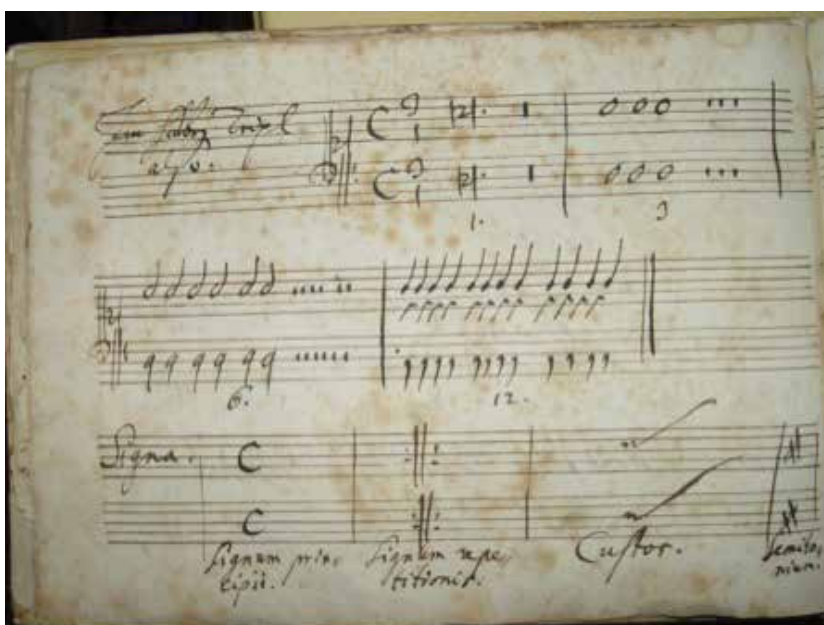 Tripl
also.
1. 3
6. 12.
Signa.
Signum prin,
cipii.
Signum repe,
titionis.
Custos.
Semito,
nium.